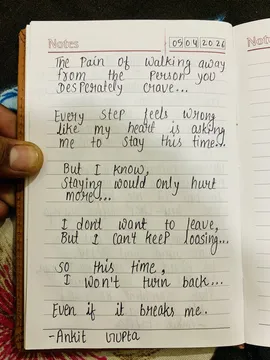 Notes
05 04 2026
Notes
The Pain of walking away
from the Person you
Desperately crave...
Every step feels wrong
like my heart is asking
me to stay this time...
But I know,
Staying would only hurt
more...
I don't want to leave,
But I can't keep loosing...
So this time,
I won't turn back...
Even if it breaks me.
-Ankit Gupta